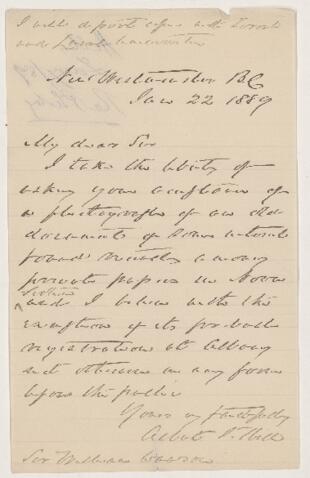 I will deposit copies with Toronto
and
New Westminster BC
Jan 22 1889
My dear Sir
I take the liberty of
asking your acceptance of
a photograph of an old
document of some interest
found recently among
private papers in Nova
Scotia
and I believe with the
exception of its probable
registration at Albany
not otherwise in any form
before the public
Yours very faithfully
Albert J. Hill
Sir William Dawson